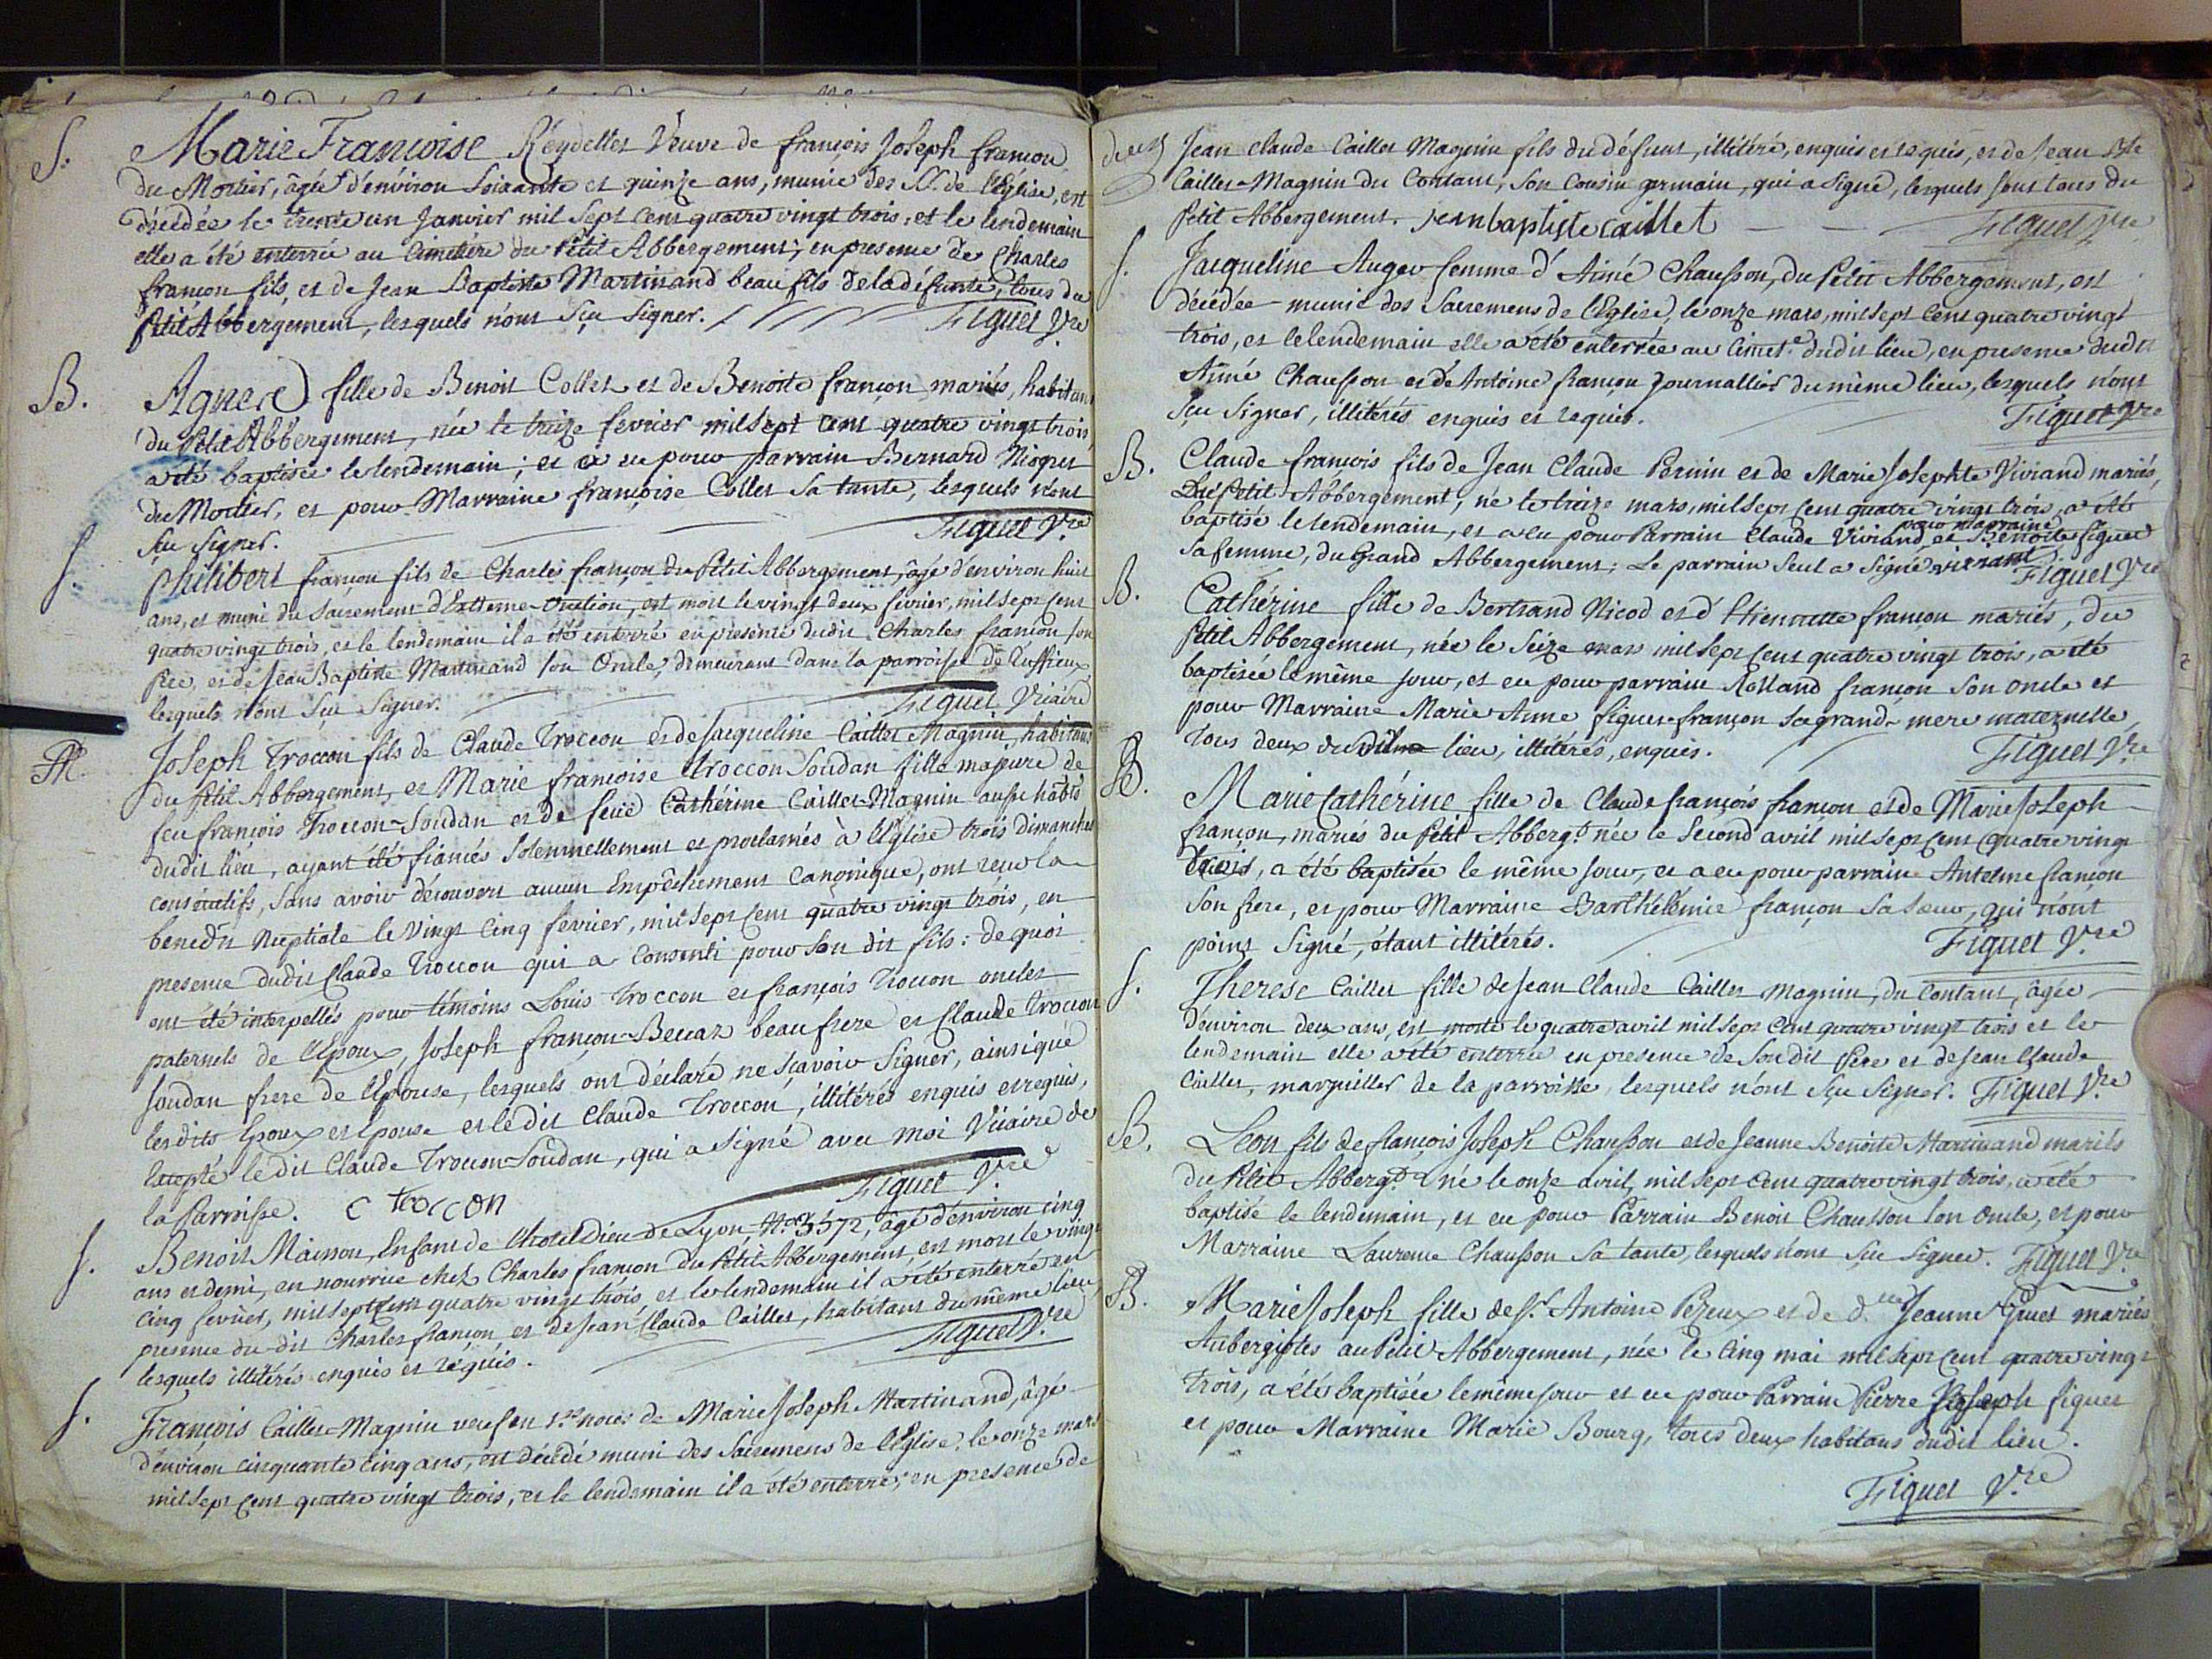 S. Marie Françoise Reydellet Veuve de françois Joseph françon
du Mortier, âgée d'environ Soixante et quinze ans, munie des SS. de l'Eglise, est
décédée le trente un Janvier mil Sept Cent quatre vingt trois, et le lendemain
elle a été enterrée au Cimetière du Petit Abbergement; en presence de Charles
françon fils, et de Jean Baptiste Martinand beau fils de la défunte, tous du
Petit Abbergement, lesquels n'ont Sçu Signer. Figuet V.re
B. Agnes fille de Benoit Collet et de Benoite françon mariés, habitans
du Petit Abbergement, née le treize fevrier mil Sept Cent quatre vingt trois,
a été baptisée le lendemain; et a eu pour parrain Bernard Niogret
du Mortier, et pour Marraine françoise Collet Sa tante, lesquels n'ont
Sçu Signer. Figuet V.re
S. Philibert françon fils de Charles françon du Petit Abbergement, âgé d'environ huit
ans, et muni du Sacrement d'Extreme-Onction, est mort le vingt deux fevrier, mil Sept Cent
quatre vingt trois, et le lendemain il a été enterré en presence dudit Charles françon Son
Pere, et de Jean Baptiste Martinand Son Oncle, demeurant dans la parroisse de Ruffieux,
lesquels n'ont Sçu Signer. Figuet Vicaire
M. Joseph Troccon fils de Claude Troccon et de Jacqueline Caillet-Magnin, habitans
du Petit Abbergement, et Marie françoise Troccon Soudan fille majeure de
feu françois Troccon-Soudan et de feüe Cathérine Caillet-Magnin aussi habts
dudit lieu, ayant été fiancés Solemnellement et proclamés à l'Eglise trois dimanches
consécutifs, Sans avoir découvert aucun Empêchement Canonique, ont reçu la
bened.on Nuptiale le Vingt Cinq fevrier, mil Sept Cent quatre vingt trois, en
presence dudit Claude Troccon qui a Consenti pour Son dit fils: de quoi
ont été interpellés pour témoins Louis Troccon et françois Troccon oncles
paternels de l'Epoux, Joseph françon-Beccaz beau frere et Claude Troccon
Soudan frere de l'Epouse, lesquels ont déclaré ne Sçavoir Signer, ainsi que
lesdits Epoux et Epouse et le dit Claude Troccon, illitérés enquis et requis,
excepté le dit Claude Troccon-Soudan, qui a Signé avec moi Vicaire de
la Parroisse. C troccon Figuet V.re
S. Benoit Maisson, Enfant de l'hotel Dieu de Lyon, N.o 3572, âgé d'environ cinq
ans et demi, en nourrice chez Charles françon du Petit Abbergement, est mort le vingt
Cinq fevrier, mil Sept Cent quatre vingt trois, et le lendemain il a été enterré en
presence du-dit Charles françon et de Jean Claude Caillet, habitant du même lieu,
lesquels illitérés enquis et requis. Figuet V.re
S. François Caillet-Magnin veuf en 1.res noces de Marie Joseph Martinand, âgé
d'environ cinquante cinq ans, est décédé muni des Sacremens de l'Eglise, le onze mars
mil Sept Cent quatre vingt trois, et le lendemain il a été enterré, en presence de
Jean Claude Caillet Magnin fils du défunt, illitéré, enquis et requis, et de Jean Bte
Caillet-Magnin du Contant, Son Cousin germain, qui a Signé, lesquels Sont tous du
Petit Abbergement. jean baptiste caillet Figuet V.re
S. Jacqueline Auger femme d'Aimé Chausson, du Petit Abbergement, est
décédée munie des Sacremens de l'Eglise, le onze mars, mil Sept Cent quatre vingt
trois, et le lendemain elle a été enterrée au Cimet.e dudit lieu, en presence dudit
Aimé Chausson et de Antoine françon Journallier du même lieu, lesquels n'ont
Sçu Signer, illitérés enquis et requis. Figuet V.re
B. Claude françois fils de Jean Claude Pernin et de Marie Josephte Viviand mariés,
Du Petit Abbergement, né le treize mars, mil Sept Cent quatre vingt trois, a été
baptisé le lendemain, et a eu pour Parrain Claude Viviand, et pour marraine Benoite figuet
Sa femme, du Grand Abbergement; Le parrain Seul a Signé viviant Figuet V.re
B. Cathérine fille de Bertrand Nicod et d'Etiennette françon mariés, du
Petit Abbergement, née le Seize mars mil Sept Cent quatre vingt trois, a été
baptisée le même jour, et eu pour parrain Rolland françon Son oncle et
pour Marraine Marie Anne figuet-françon Sa grand-mere maternelle,
Tous deux dudit lieu, illitérés, enquis. Figuet V.re
B. Marie Cathérine fille de Claude françois françon et de Marie Joseph
françon, mariés du Petit Abberg.t née le Second avril mil Sept Cent quatre vingt
trois, a été baptisée le même jour, et a eu pour parrain Antelme françon
Son frere, et pour Marraine Barthélemie françon Sa Sœur, qui n'ont
point Signé, étant illitérés. Figuet V.re
S. Therese Caillet fille de Jean Claude Caillet Magnin, du Contant, âgée
d'environ deux ans, est morte le quatre avril mil Sept Cent quatre vingt trois et le
lendemain elle a été enterrée en presence de Son dit Pere et de Jean Claude
Caillet, marguiller de la parroisse, lesquels n'ont Sçu Signer. Figuet V.re
B. Leon fils de françois Joseph Chausson et de Jeanne Benoite Martinand mariés
du Petit Abberg.t né le onze avril, mil Sept Cent quatre vingt trois, a été
baptisé le lendemain, et eu pour Parrain Benoit Chausson Son Oncle, et pour
Marraine Laurence Chausson Sa tante, lesquels n'ont Sçu Signer. Figuet V.re
B. Marie Joseph fille de S.r Antoine Pezeux et de d.lle Jeanne mariés
Aubergistes au Petit Abbergement, née le Cinq mai mil Sept Cent quatre vingt
Trois, a été baptisée le même jour et eu pour Parrain Pierre Joseph figuet
et pour Marraine Marie Bourg, tous deux habitans dudit lieu.
Figuet V.re